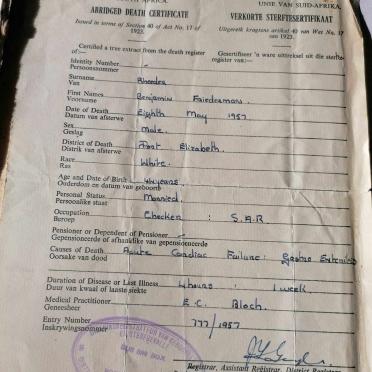 AFRICA. UNIE VAN SUID-AFRIKA.
ABRIDGED DEATH CERTIFICATE VERKORTE STERFTESERTIFIKAAT
Issued in terms of Section 40 of Act No. 17 of 1923. Uitgereik kragtens artikel 40 van Wet No. 17 van 1923.
Certified a true extract from the death register of:— Gesertifiseer 'n ware uittreksel uit die sterfteregister van:—
Identity Number –
Persoonsnommer
Surname
Van
First Names Benjamin
Voorname
Date of Death Eighth May 1957
Datum van afsterwe
Sex Male.
Geslag
District of Death Port Elizabeth.
Distrik van afsterwe
Race White.
Ras
Age and Date of Birth 44 years.
Ouderdom en datum van geboorte
Personal Status Married.
Persoonlike staat
Occupation Checker : S.A.R
Beroep
Pensioner or Dependent of Pensioner –
Gepensioeneerde of afhanklike van gepensioeneerde
Causes of Death Acute Cardiac Failure: Gastro
Oorsake van dood
Duration of Disease or Last Illness 4 hours : 1 week.
Duur van kwaal of laaste siekte
Medical Practitioner E.C. Bloch.
Geneesheer
Entry Number 777/1957
Inskrywingsnommer
Registrar, Assistant Registrar, District Registrar